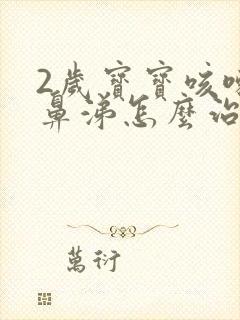 2歲寶寶咳嗽
鼻涕怎麼治
萬衍